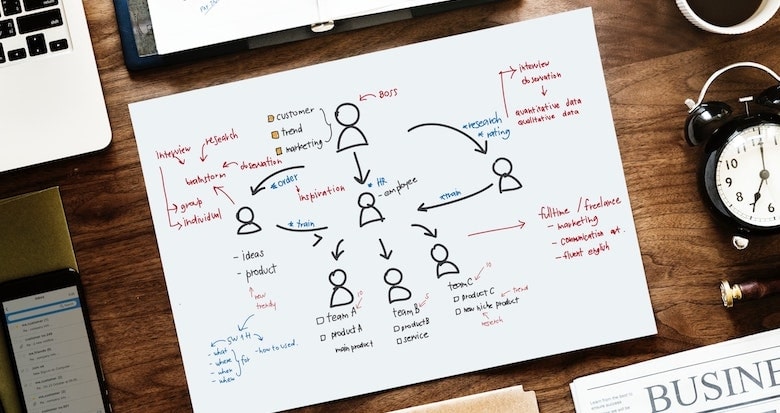 BOSS
customer
trend
marketing
interview
observation
quantitative data
qualitative data
*research
*rating
interview
research
brainstorm
observation
group
individual
*order
inspiration
*HR
- employee
*train
*train
- ideas
- product
new
trendy
5W+H
- what
- where
- when
- how to used.
fulltime / freelance
- marketing
- fluent english
team A
10
product A
main product
team B
5
product B
service
team C
10
product C
new niche product
trend
research
BUSINE